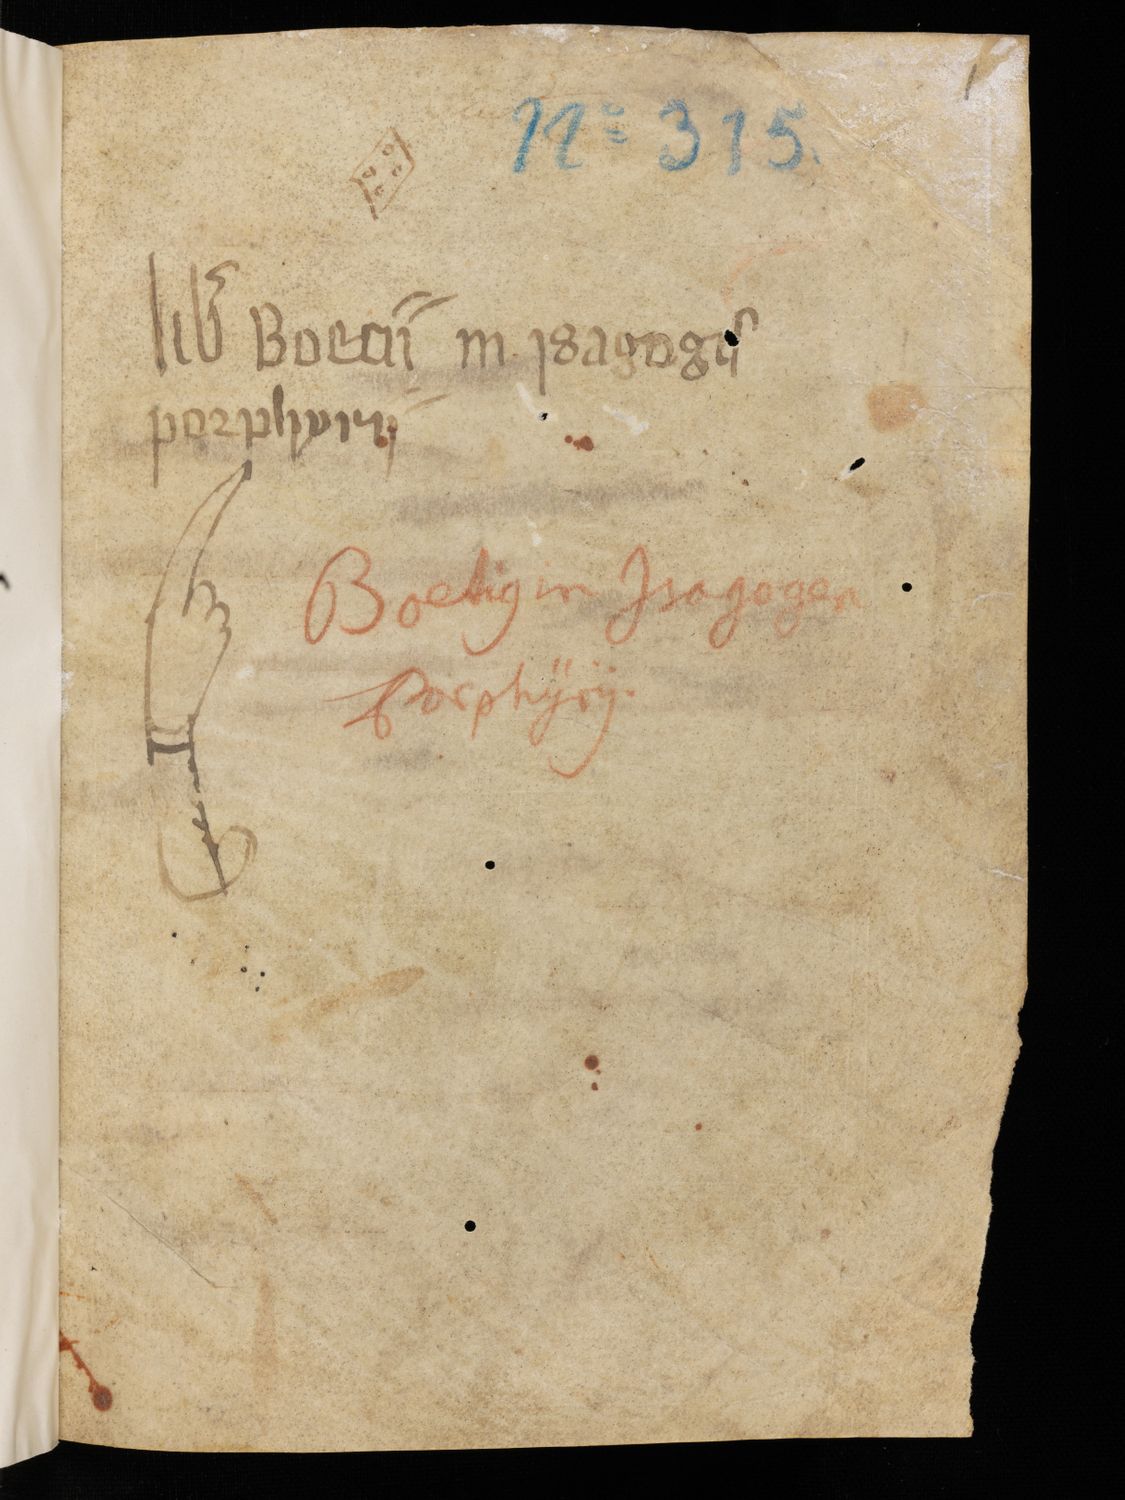 Nº 315.
lib̄ Boecii in isagogis
porphirii
Boetiq in Isagogen
Porphÿrij.